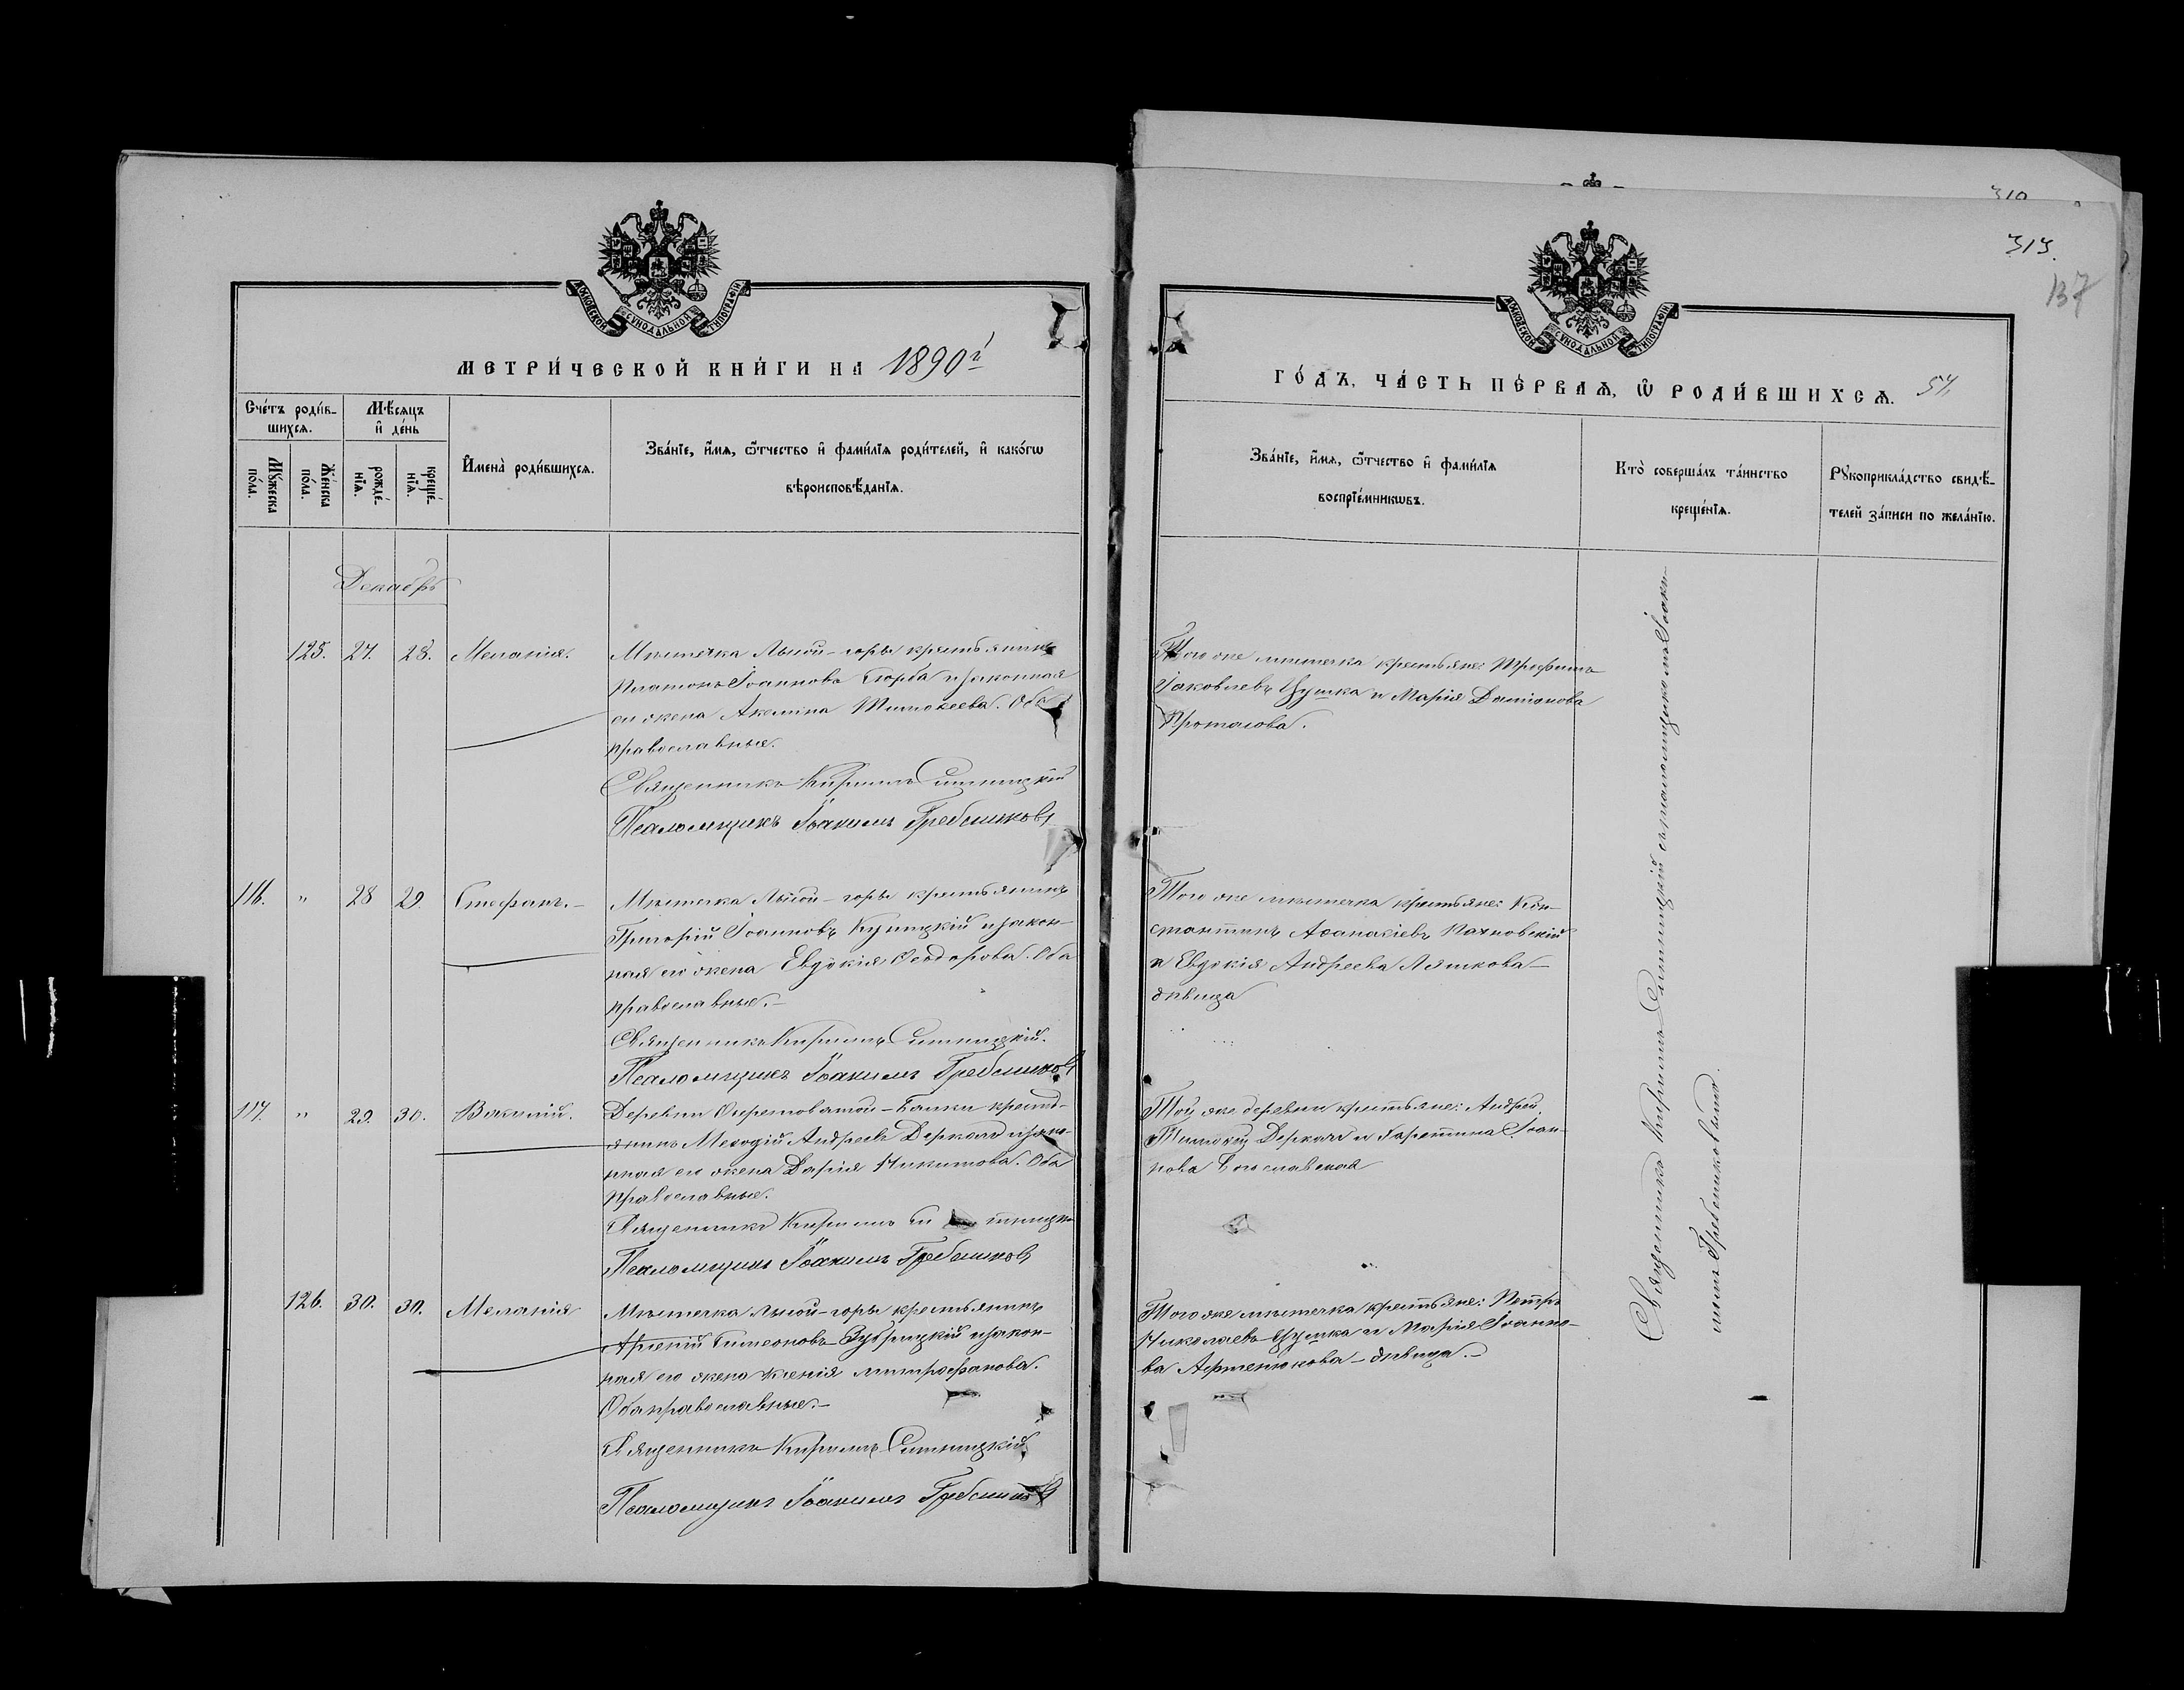 МОСКОВСКОЙ СѴНОДАЛЬНОЙ ТИПОГРАФІИ
МЕТРИ́ЧЕСКОЙ КНИ́ГИ НА 1890й
Сче́тъ роди́в-
шихсѧ.
Мꙋ́жеска
по́ла.
Же́нска
по́ла.
Мѣ́сѧцъ
и҆ де́нь
рожде́-
нїѧ.
креще́-
нїѧ.
И҆мена̀ роди́вшихсѧ.
Зва́нїе, и҆́мѧ, ѻ҆́тчество и҆ фами́лїѧ роди́телей, и҆ како́гѡ
вѣроисповѣ́данїѧ.
Декабрь
125. 27. 28. Меланія.
Мѣстечка Лысой-горы крестьянинъ
Платонъ Іоанновъ и законная
его жена Акилина Тимоѳеева. Оба
православные.
Священникъ Кириллъ Ситницкій
Псаломщикъ Іоакимъ Гребенниковъ
116. " 28 29. Стефанъ.-
Мѣстечка Лысой-горы крестьянинъ
Григорій Іоанновъ Купицкій и закон-
ная его жена Евдокія Ѳеодорова. Оба
православные.-
Священникъ Кириллъ Ситницкій.
Псаломщикъ Іоакимъ Гребенниковъ
117. " 29. 30. Викентій.
Деревни -Балки кресть-
янинъ Меѳодій Андреевъ Деркачъ и зако-
нная его жена Дарія Никитова. Оба
православные.
Священникъ Кириллъ Ситницкій
Псаломщикъ Іоакимъ Гребенниковъ
126. 30. 30. Меланія
Мѣстечка Лысой-горы крестьянинъ
Арсеній Симеоновъ Зубрицкій и закон-
ная его жена Ксенія Митрофанова.
Оба православные.-
Священникъ Кириллъ Ситницкій
Псаломщикъ Іоакимъ Гребенниковъ
310
313.
137
МОСКОВСКОЙ СѴНОДАЛЬНОЙ ТИПОГРАФІИ
ГО́ДЪ, ЧА́СТЬ ПЕ́РВАѦ, Ѡ҆ РОДИ́ВШИХСѦ. 54.
Зва́нїе, и҆́мѧ, ѻ҆́тчество и҆ фами́лїѧ
воспрїе́мникѡвъ.
Кто̀ соверша́лъ та́инство
креще́нїѧ.
Рꙋкоприкла́дство свидѣ́-
телей за́писи по жела́нїю.
Того же мѣстечка крестьяне: Трофимъ
Іаковлевъ Цушка и Марія Даміанова
Протасова.
Того же мѣстечка крестьяне: Кон-
стантинъ Аѳанасіевъ Пахновскій
и Евдокія Андреева Ляшкова-
дѣвица
Той же деревни крестьяне: Андрей
Тимоѳеевъ Деркачъ и Іоан-
нова Богославская
Того же мѣстечка крестьяне: Петръ
Николаевъ Цушка и Марія Іоанно-
ва Артемюкова-дѣвица.-
Священникъ Кириллъ Ситницкій съ псаломщикомъ Іоаки-
момъ Гребенниковымъ.